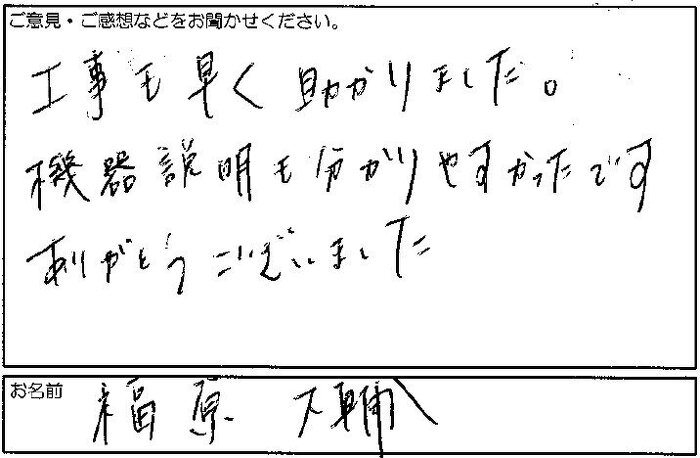 ご意見・ご感想などをお聞かせください。
工事も早く助かりました。
機器説明も分かりやすかったです
ありがとうございました
お名前
福原 大輔